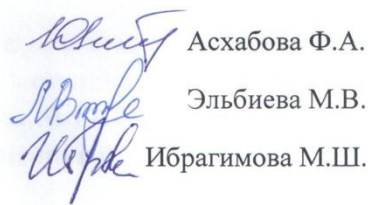 Асхабова Ф.А.
Эльбиева М.В.
Ибрагимова М.Ш.